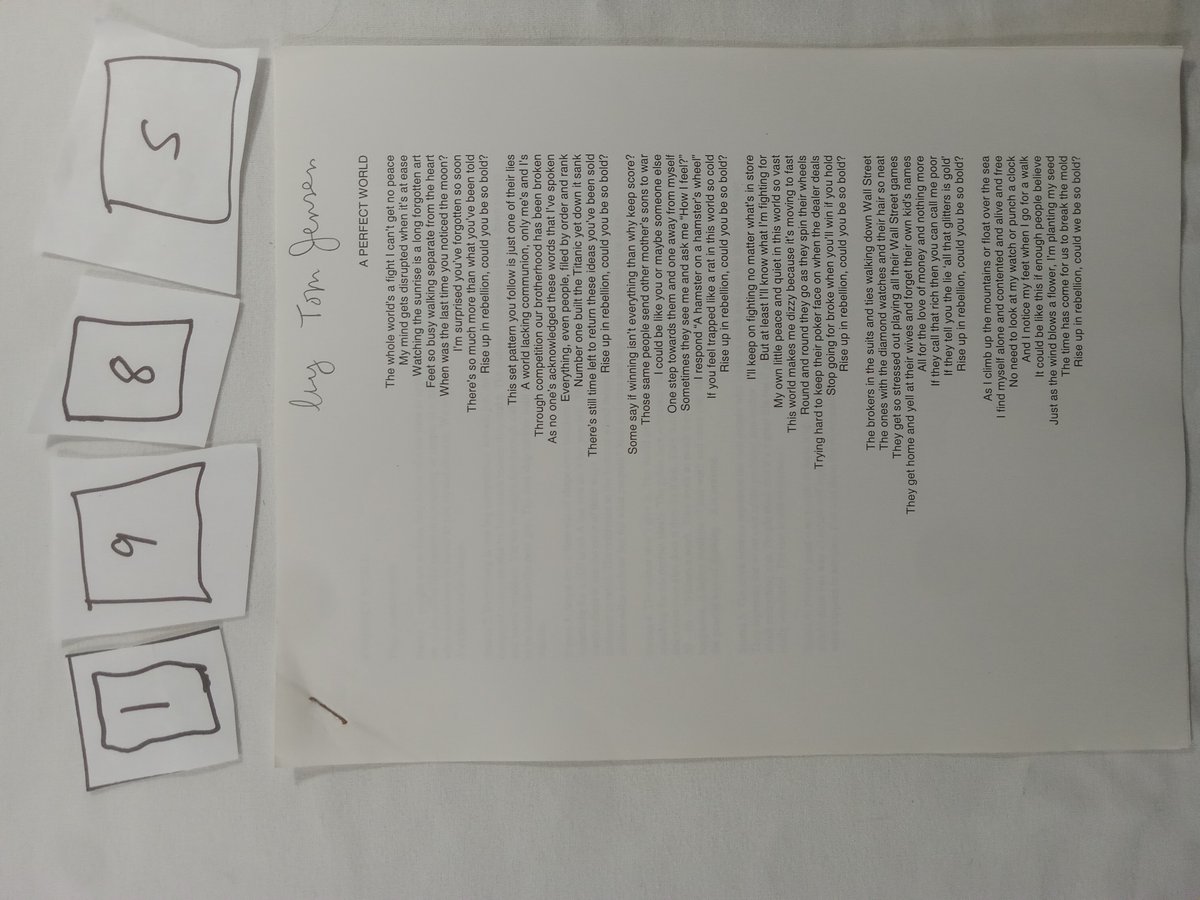 1 9 8 5
by Tom Jensen
A PERFECT WORLD
The whole world's a fight I can't get no peace
My mind gets disrupted when it's at ease
Watching the sunrise is a long forgotten art
Feet so busy walking separate from the heart
When was the last time you noticed the moon?
I'm surprised you've forgotten so soon
There's so much more than what you've been told
Rise up in rebellion, could you be so bold?
This set pattern you follow is just one of their lies
A world lacking communion, only me's and I's
Through competition our brotherhood has been broken
As no one's acknowledged these words that I've spoken
Everything, even people, filed by order and rank
Number one built the Titanic yet down it sank
There's still time left to return these ideas you've been sold
Rise up in rebellion, could you be so bold?
Some say if winning isn't everything than why keep score?
Those same people send other mother's sons to war
I could be like you or maybe someone else
One step towards them and one away from myself
Sometimes they see me and ask me "How I feel?"
I respond "A hamster on a hamster's wheel"
If you feel trapped like a rat in this world so cold
Rise up in rebellion, could you be so bold?
I'll keep on fighting no matter what's in store
But at least I'll know what I'm fighting for
My own little peace and quiet in this world so vast
This world makes me dizzy because it's moving to fast
Round and round they go as they spin their wheels
Trying hard to keep their poker face on when the dealer deals
Stop going for broke when you'll win if you hold
Rise up in rebellion, could you be so bold?
The brokers in the suits and ties walking down Wall Street
The ones with the diamond watches and their hair so neat
They get so stressed out playing all their Wall Street games
They get home and yell at their wives and forget their own kid's names
All for the love of money and nothing more
If they call that rich then you can call me poor
If they tell you the lie 'all that glitters is gold'
Rise up in rebellion, could you be so bold?
As I climb up the mountains or float over the sea
I find myself alone and contented and alive and free
No need to look at my watch or punch a clock
And I notice my feet when I go for a walk
It could be like this if enough people believe
Just as the wind blows a flower, I'm planting my seed
The time has come for us to break the mold
Rise up in rebellion, could we be so bold?